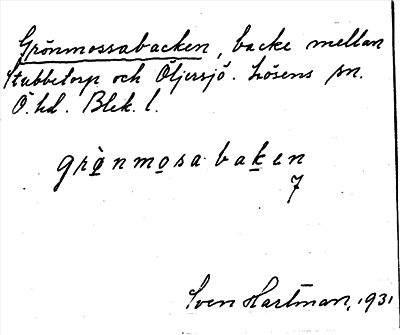 Grönmossabacken, backe mellan
Stubbetorp och Öljersjö. Lösens sn.
Ö. hd. Blek. l.
grönmosabaken
7
Sven Hartman, 1931